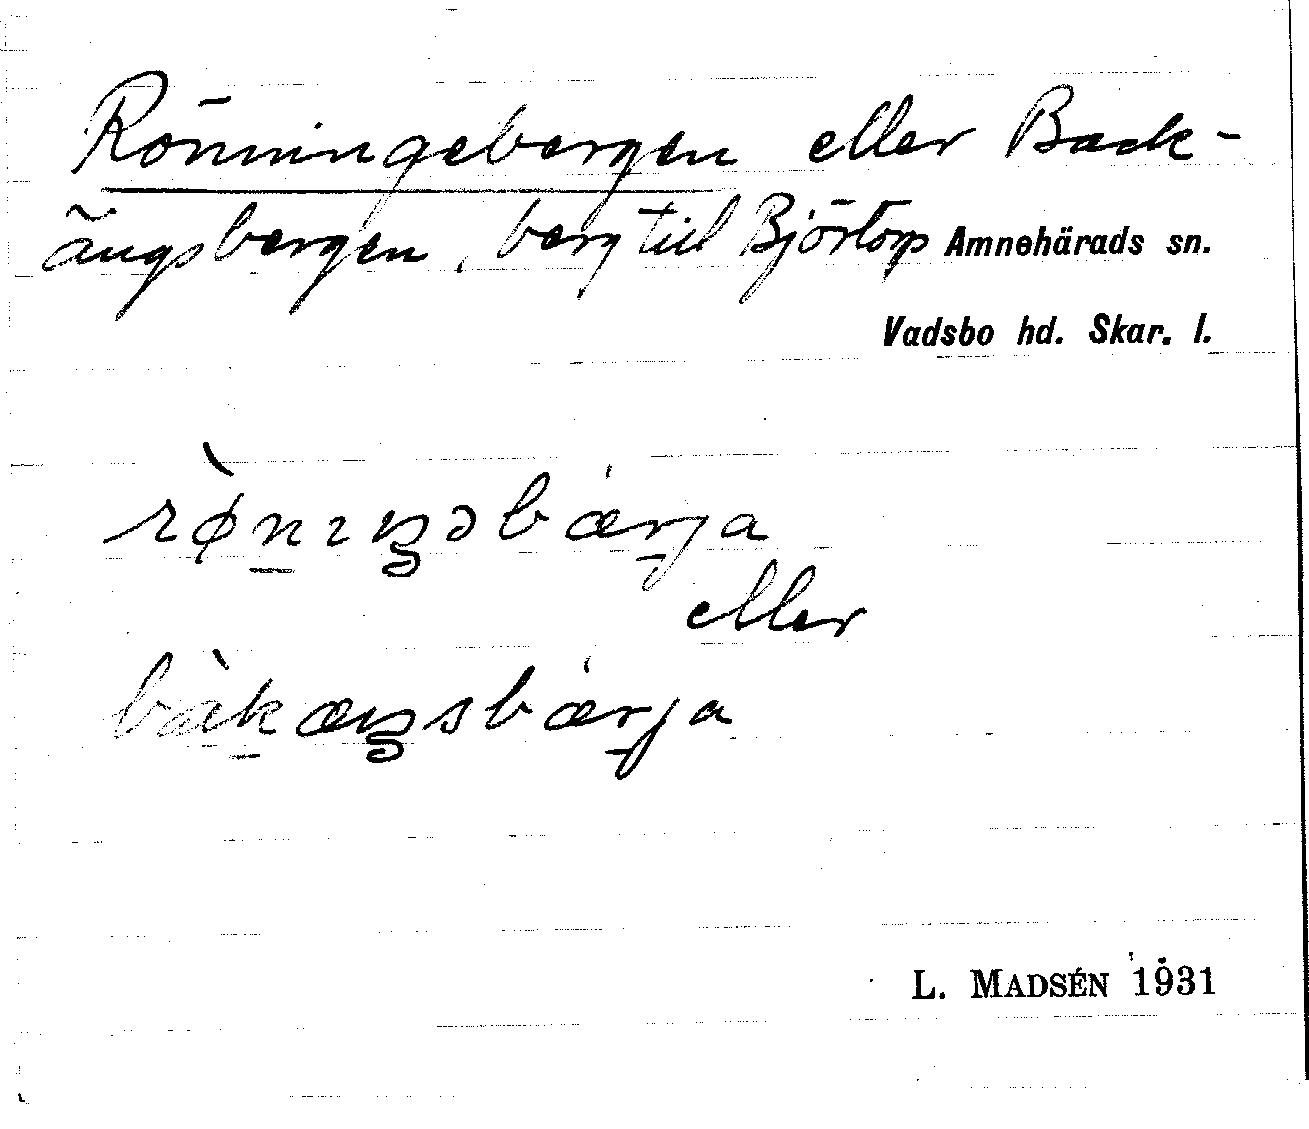 Rönningebergen eller Back-
ängsbergen, berg till Björtorp Amnehärads sn.
Vadsbo hd. Skar. l.
rø̀nıŋəbærja
eller
bàkæŋsbærja
L. MADSÉN 1931